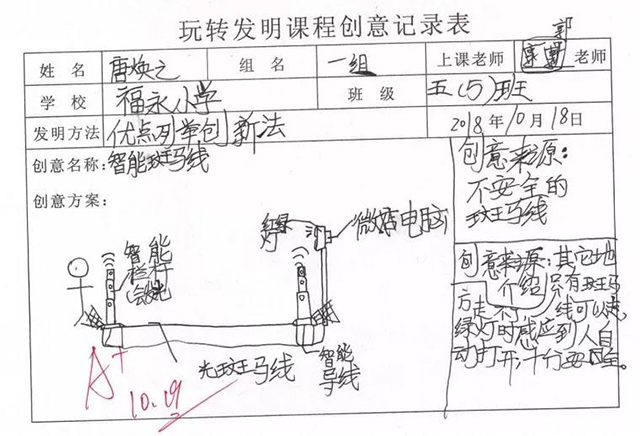 玩转发明课程创意记录表
姓 名 唐焕之 组 名 一组 上课老师 郭 老师
学 校 福永小学 班 级 五(5)班
发明方法 优点列举创新法 2018年10月18日
创意名称:智能斑马线
创意方案:
创意来源:
不安全的
斑马线
红绿
灯
微型电脑
智能
栏杆
(会发光
光斑马线
智能
导线
创意来源:其它地
介绍 只有斑马
方走不了,线可以走,
绿灯时感应到人自
动打开,十分安全。
A+
10.19